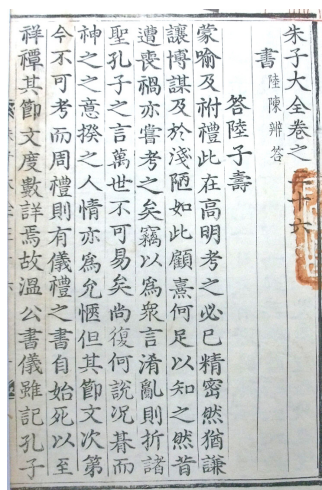 朱子大全卷之三十六
書 陸陳辨答
答陸子壽
蒙喻及祔禮此在高明考之必已精密然猶謙
讓博謀及於淺陋如此顧熹何足以知之然昔
遭喪禍亦嘗考之矣竊以爲衆言淆亂則折諸
聖孔子之言萬世不可易矣尚復何說况朞而
神之之意揆之人情亦爲允愜但其節文次第
今不可考而周禮則有儀禮之書自始死以至
祥禫其節文度數詳焉故溫公書儀雖記孔子